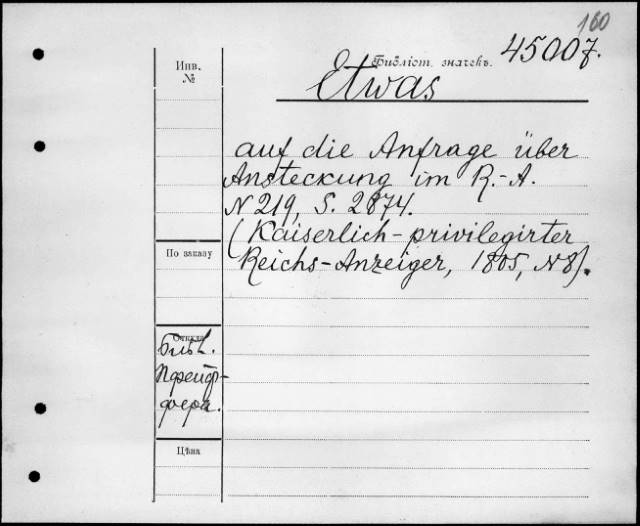 160
Библіот. значекъ. 45007.
Инв.
№
Etwas
auf die Anfrage über
Ansteckung im R.-A.
N 219, S. 2874.
(Kaiserlich-privilegirter
Reichs-Anzeiger, 1805, N 8).
По заказу
Откуда
Библ.
Пфейф-
фера.
Цѣна